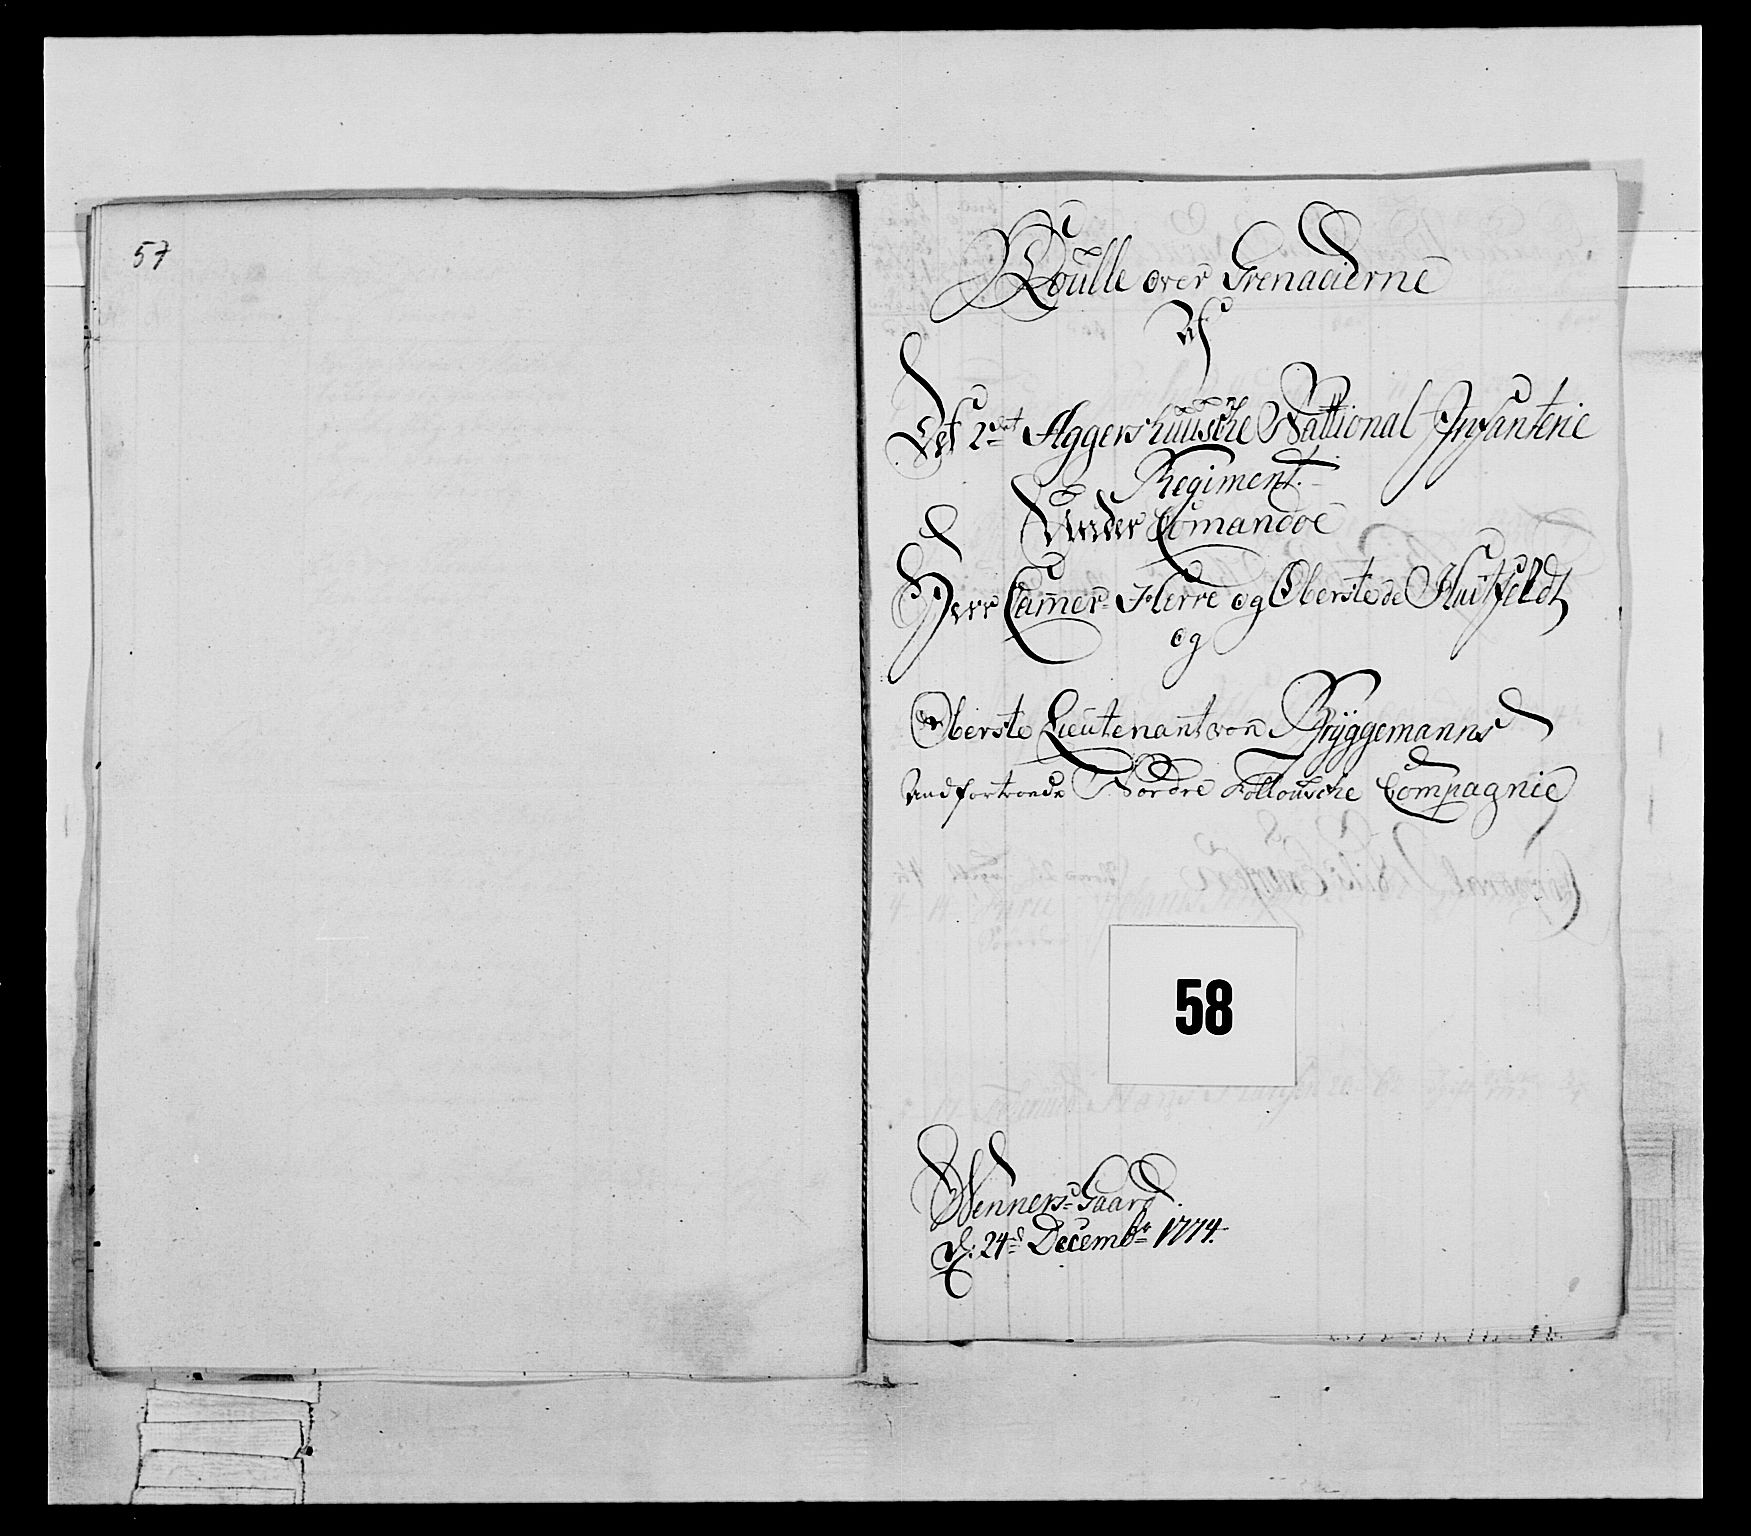 57
Roulle over Grenaderne
Af
Det 2det Aggershuusche National Infanterie
Regiment.
Under Comando
Herr Camer-Herre og Oberste de Huitfeldt
og
Oberste Lieutenant von Brÿggemanns
Andfortroede Nordre Follousche Compagnie
58
Wenners-Gaard.
d: 24d Decembr 1774.